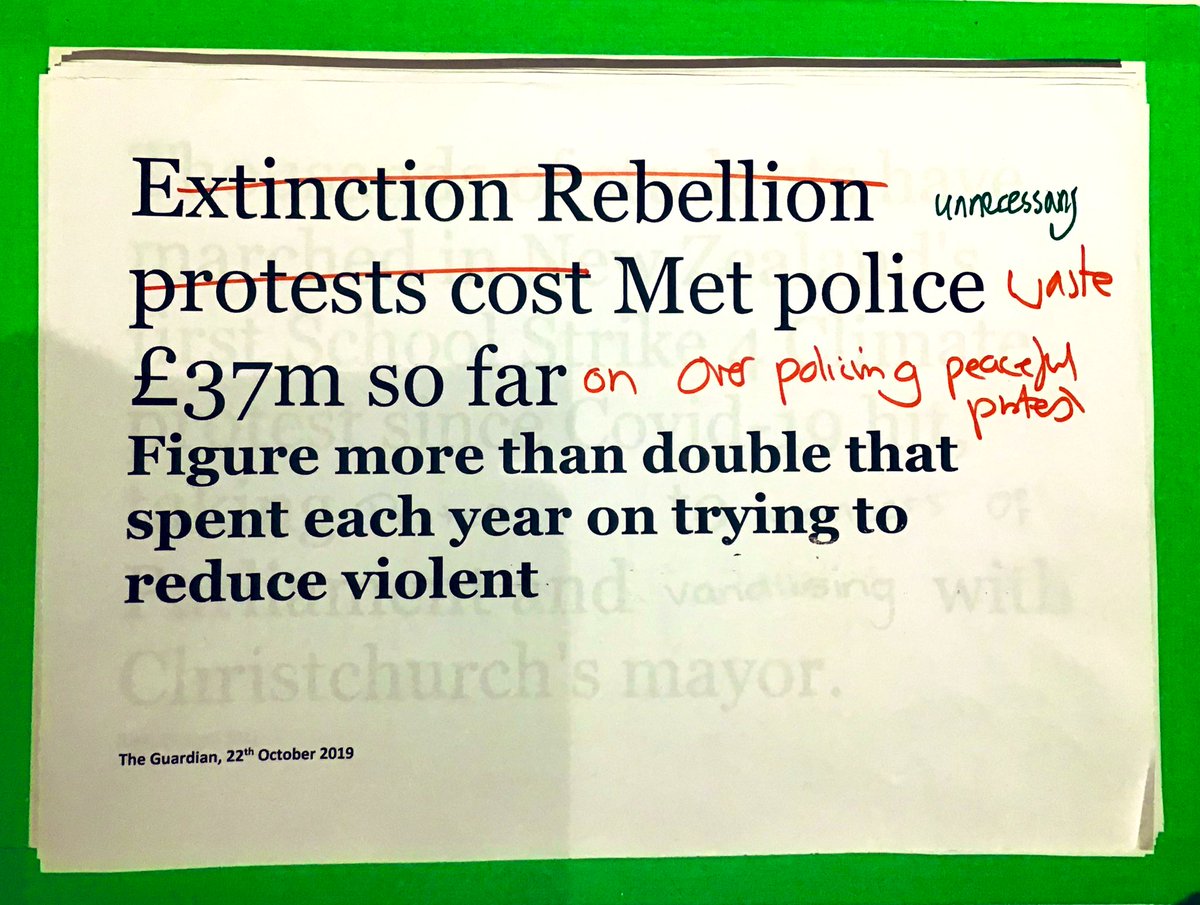 Extinction Rebellion unnecessary
protests cost Met police waste
£37m so far on over policing peaceful
protest
Figure more than double that
spent each year on trying to
reduce violent
vandalising with
Christchurch's mayor.
The Guardian, 22th October 2019